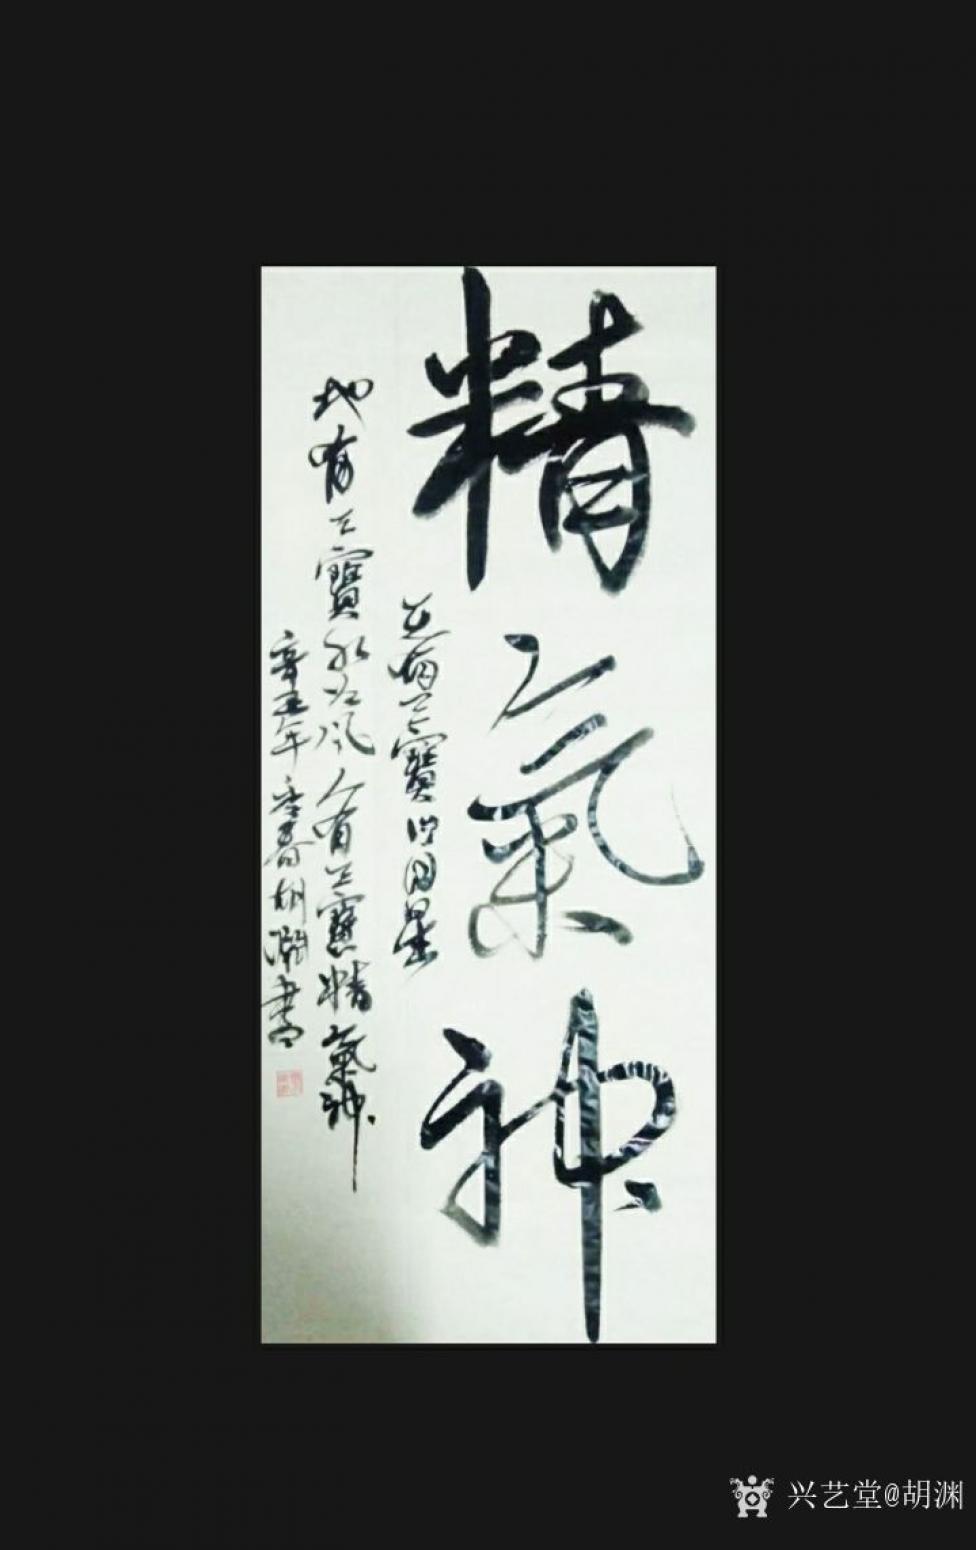 精氣神
天有三寶日月星
地有三寶水火風人有三寶精氣神
辛丑年季春胡淵書
兴艺堂@胡渊